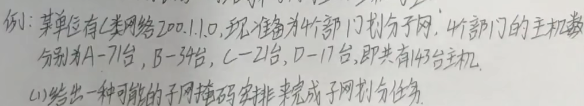 例：某单位有C类网络200.1.1.0，现准备为4个部门划分子网，4个部门的主机数
分别为A-71台，B-34台，C-21台，D-17台，即共有143台主机。
(1)给出一种可能的子网掩码安排来完成子网划分任务